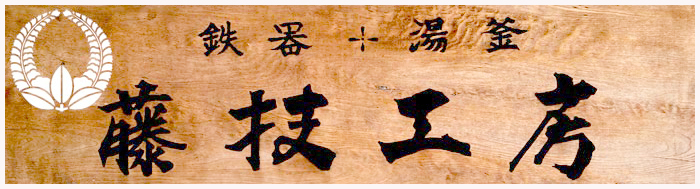 鉄器 ⊹ 湯釜
藤技工房